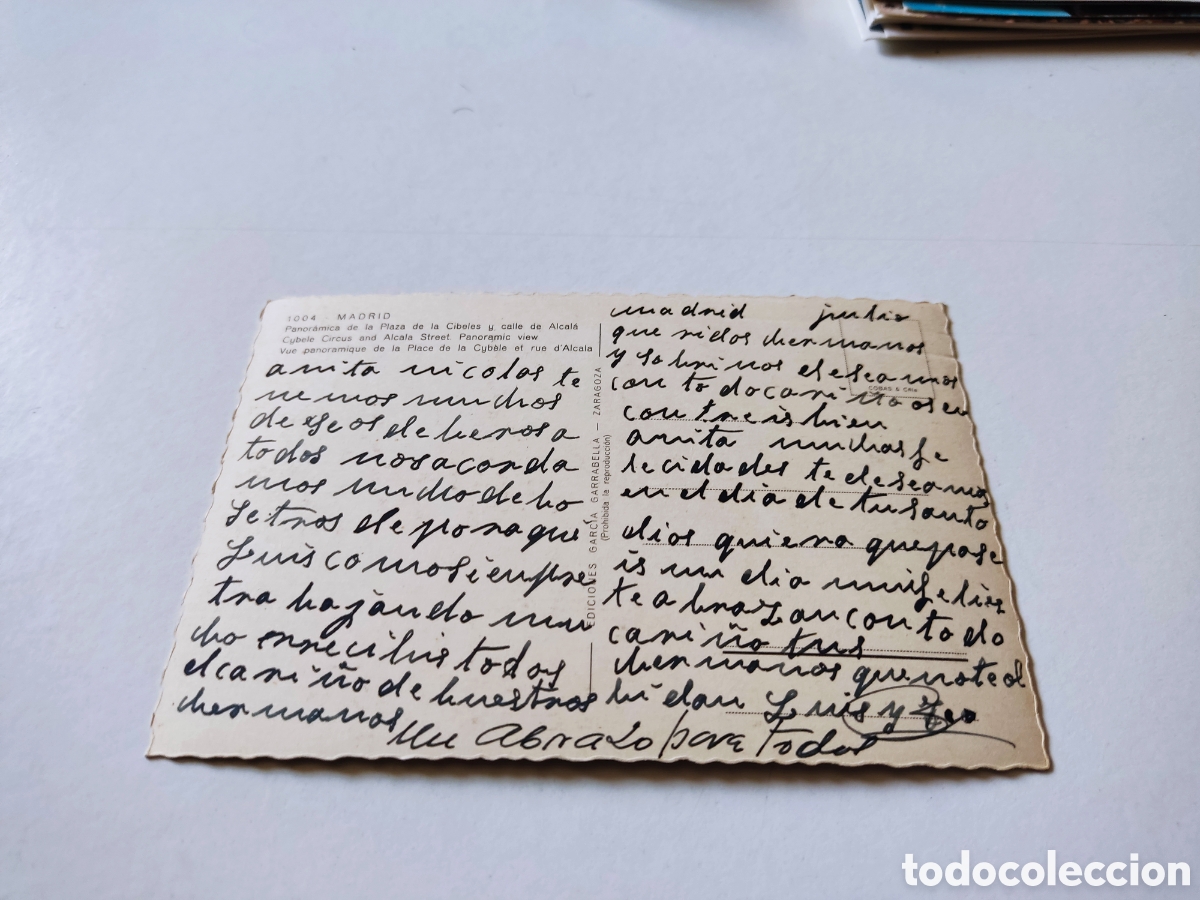 1004 - MADRID
Panorámica de la Plaza de la Cibeles y calle de Alcalá
Cybele Circus and Alcala Street. Panoramic view
Vue panoramique de la Place de la Cybèle et rue d'Alcala
anita nicolas te
nemos muchos
deseos de beros a
todos nos acorda
mos mucho de bo
setros de pora que
Luis como siempre
tra bajando mu
cho recibis todos
el cariño de buestros
hermanos
Un Abrazo para todos
EDICIONES GARCÍA GARRABELLA - ZARAGOZA
(Prohibida la reproducción)
COBAS S CRIA
madrid julio
que ridos hermanos
y sobrinos deseamos
con todo cariño os en
contreis bien
anita muchas fe
lecidades te deseamos
en el dia de tu santo
dios quiera que pase
is un dia mui felies
te abrazan con todo
cariño tus
hermanos que no te ol
bidan Luis y Teo
todocoleccion